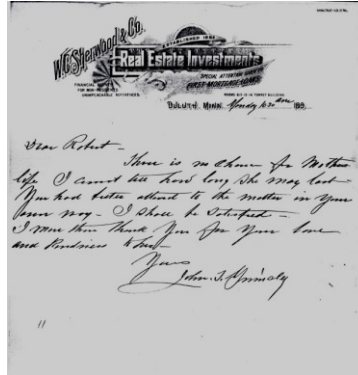 W.C. Sherwood & Co.
ESTABLISHED 1882
Real Estate Investments
SPECIAL ATTENTION GIVEN
FIRST MORTGAGE LOANS
FINANCIAL AGENTS
FOR NON-RESIDENTS
UNIMPEACHABLE REFERENCES.
DULUTH, MINN. Monday 6:30 189
Dear Robert -
There is no Chance for Mothers
life I cannot tell how long she may last
You had better attend to the matter in Your
own way - I shall be Satisfied -
I more than thank You for Your love
and Kindness to
Yours
John. T.
11